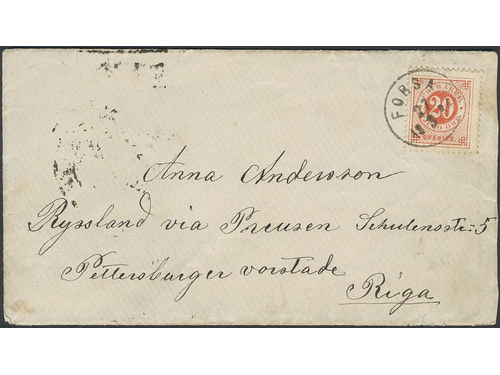 FORSA
FRIMÄRKE
20
SVERIGE
Anna Andersson
Ryssland via Preusen Schulensstr: 5
Pettersburger vorstade
Riga